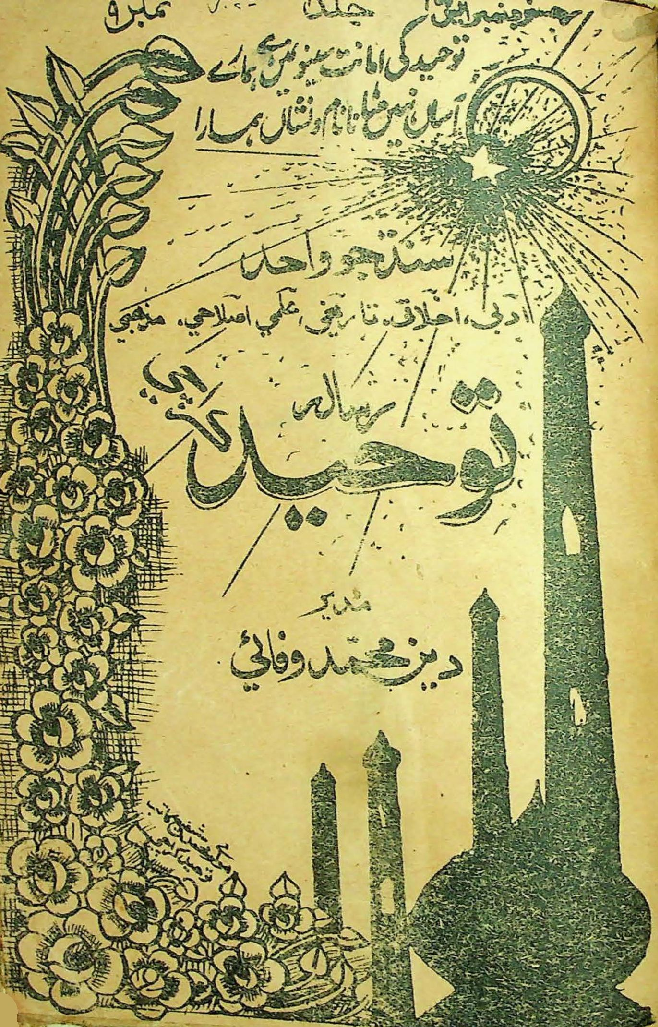 جلد نمبر ٩
توحید کی امانت سینوں میں ہے ہمارے
آساں نہیں مٹانا نام و نشاں ہمارا
سنڌ جو واحد
ادبي، اخلاقي، تاريخي، علمي، اصلاحي، مذهبي
رسالہ
توحيد ڪراچي
مدير
دين محمد وفائي